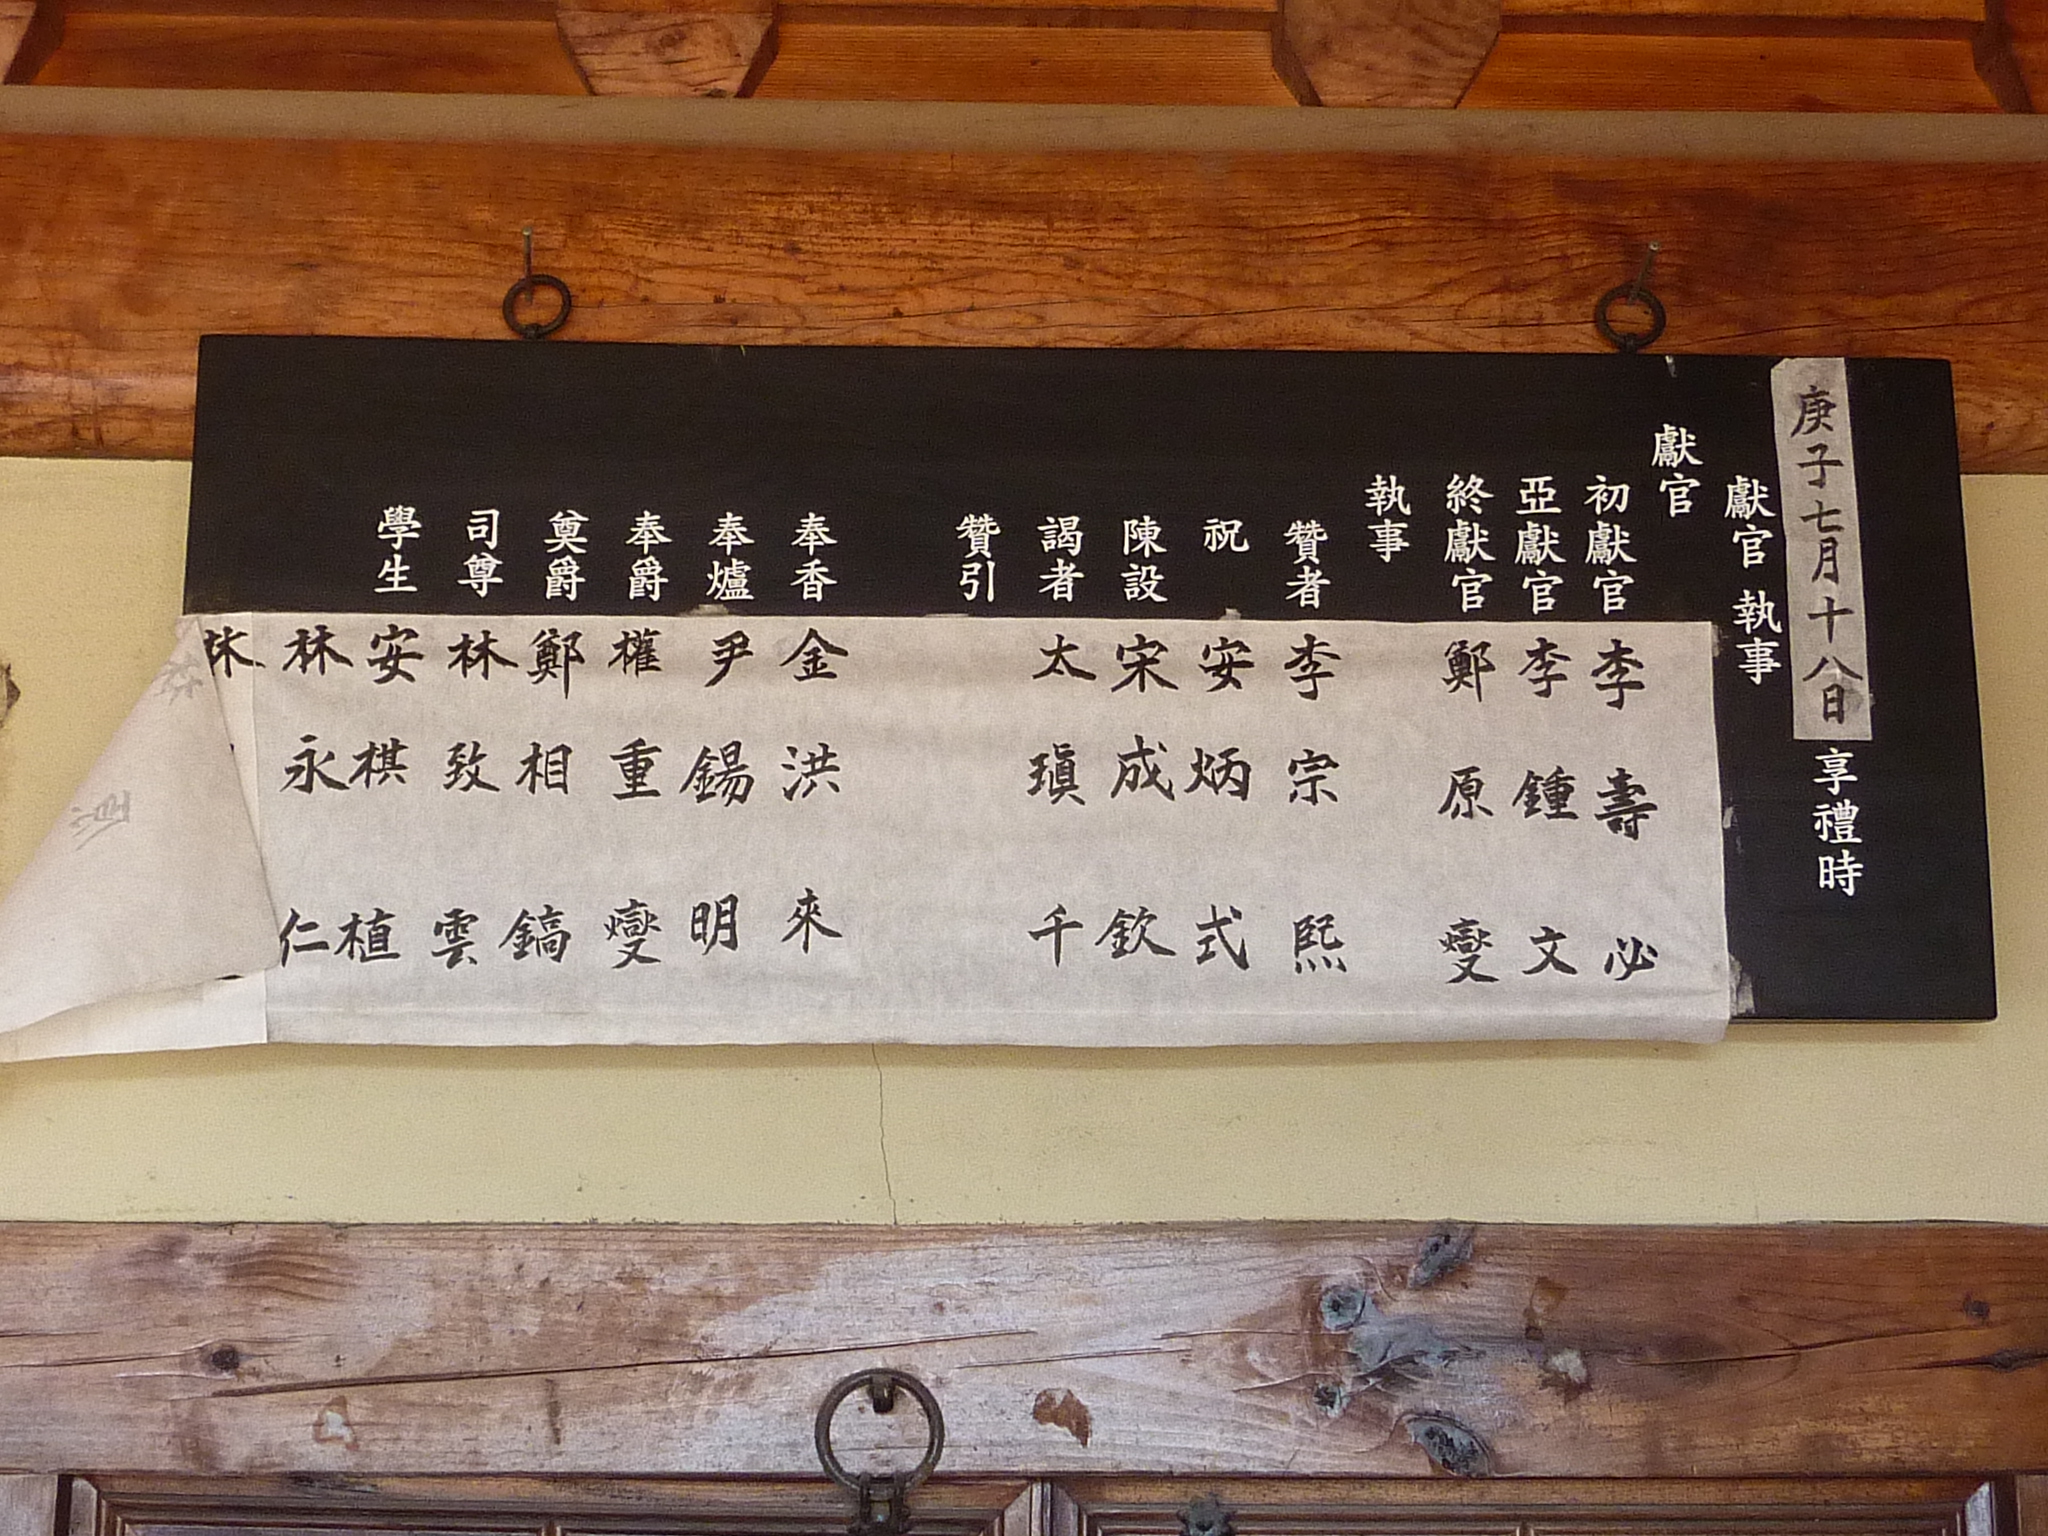 庚子七月十八日享禮時
獻官 執事
獻官
初獻官 李壽必
亞獻官 李鍾文
終獻官 鄭原燮
執事
贊者 李宗熙
祝 安炳式
陳設 宋成欽
謁者 太瑱千
贊引
奉香 金洪來
奉爐 尹錫明
奉爵 權重燮
奠爵 鄭相鎬
司尊 林致雲
學生 安棋植
林永仁
林